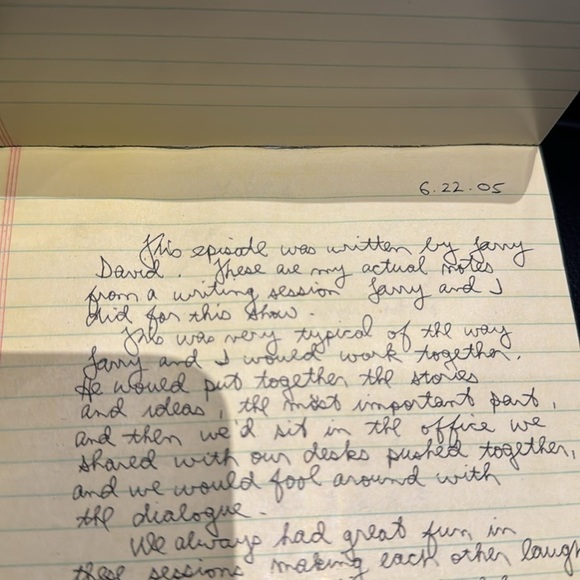 6.22.05
This episode was written by Larry
David. These are my actual notes
from a writing session Larry and I
did for this show.
This was very typical of the way
Larry and I would work together.
He would put together the stories
and ideas, the most important part,
and then we'd sit in the office we
shared with our desks pushed together,
and we would fool around with
the dialogue.
We always had great fun in
these sessions making each other laugh